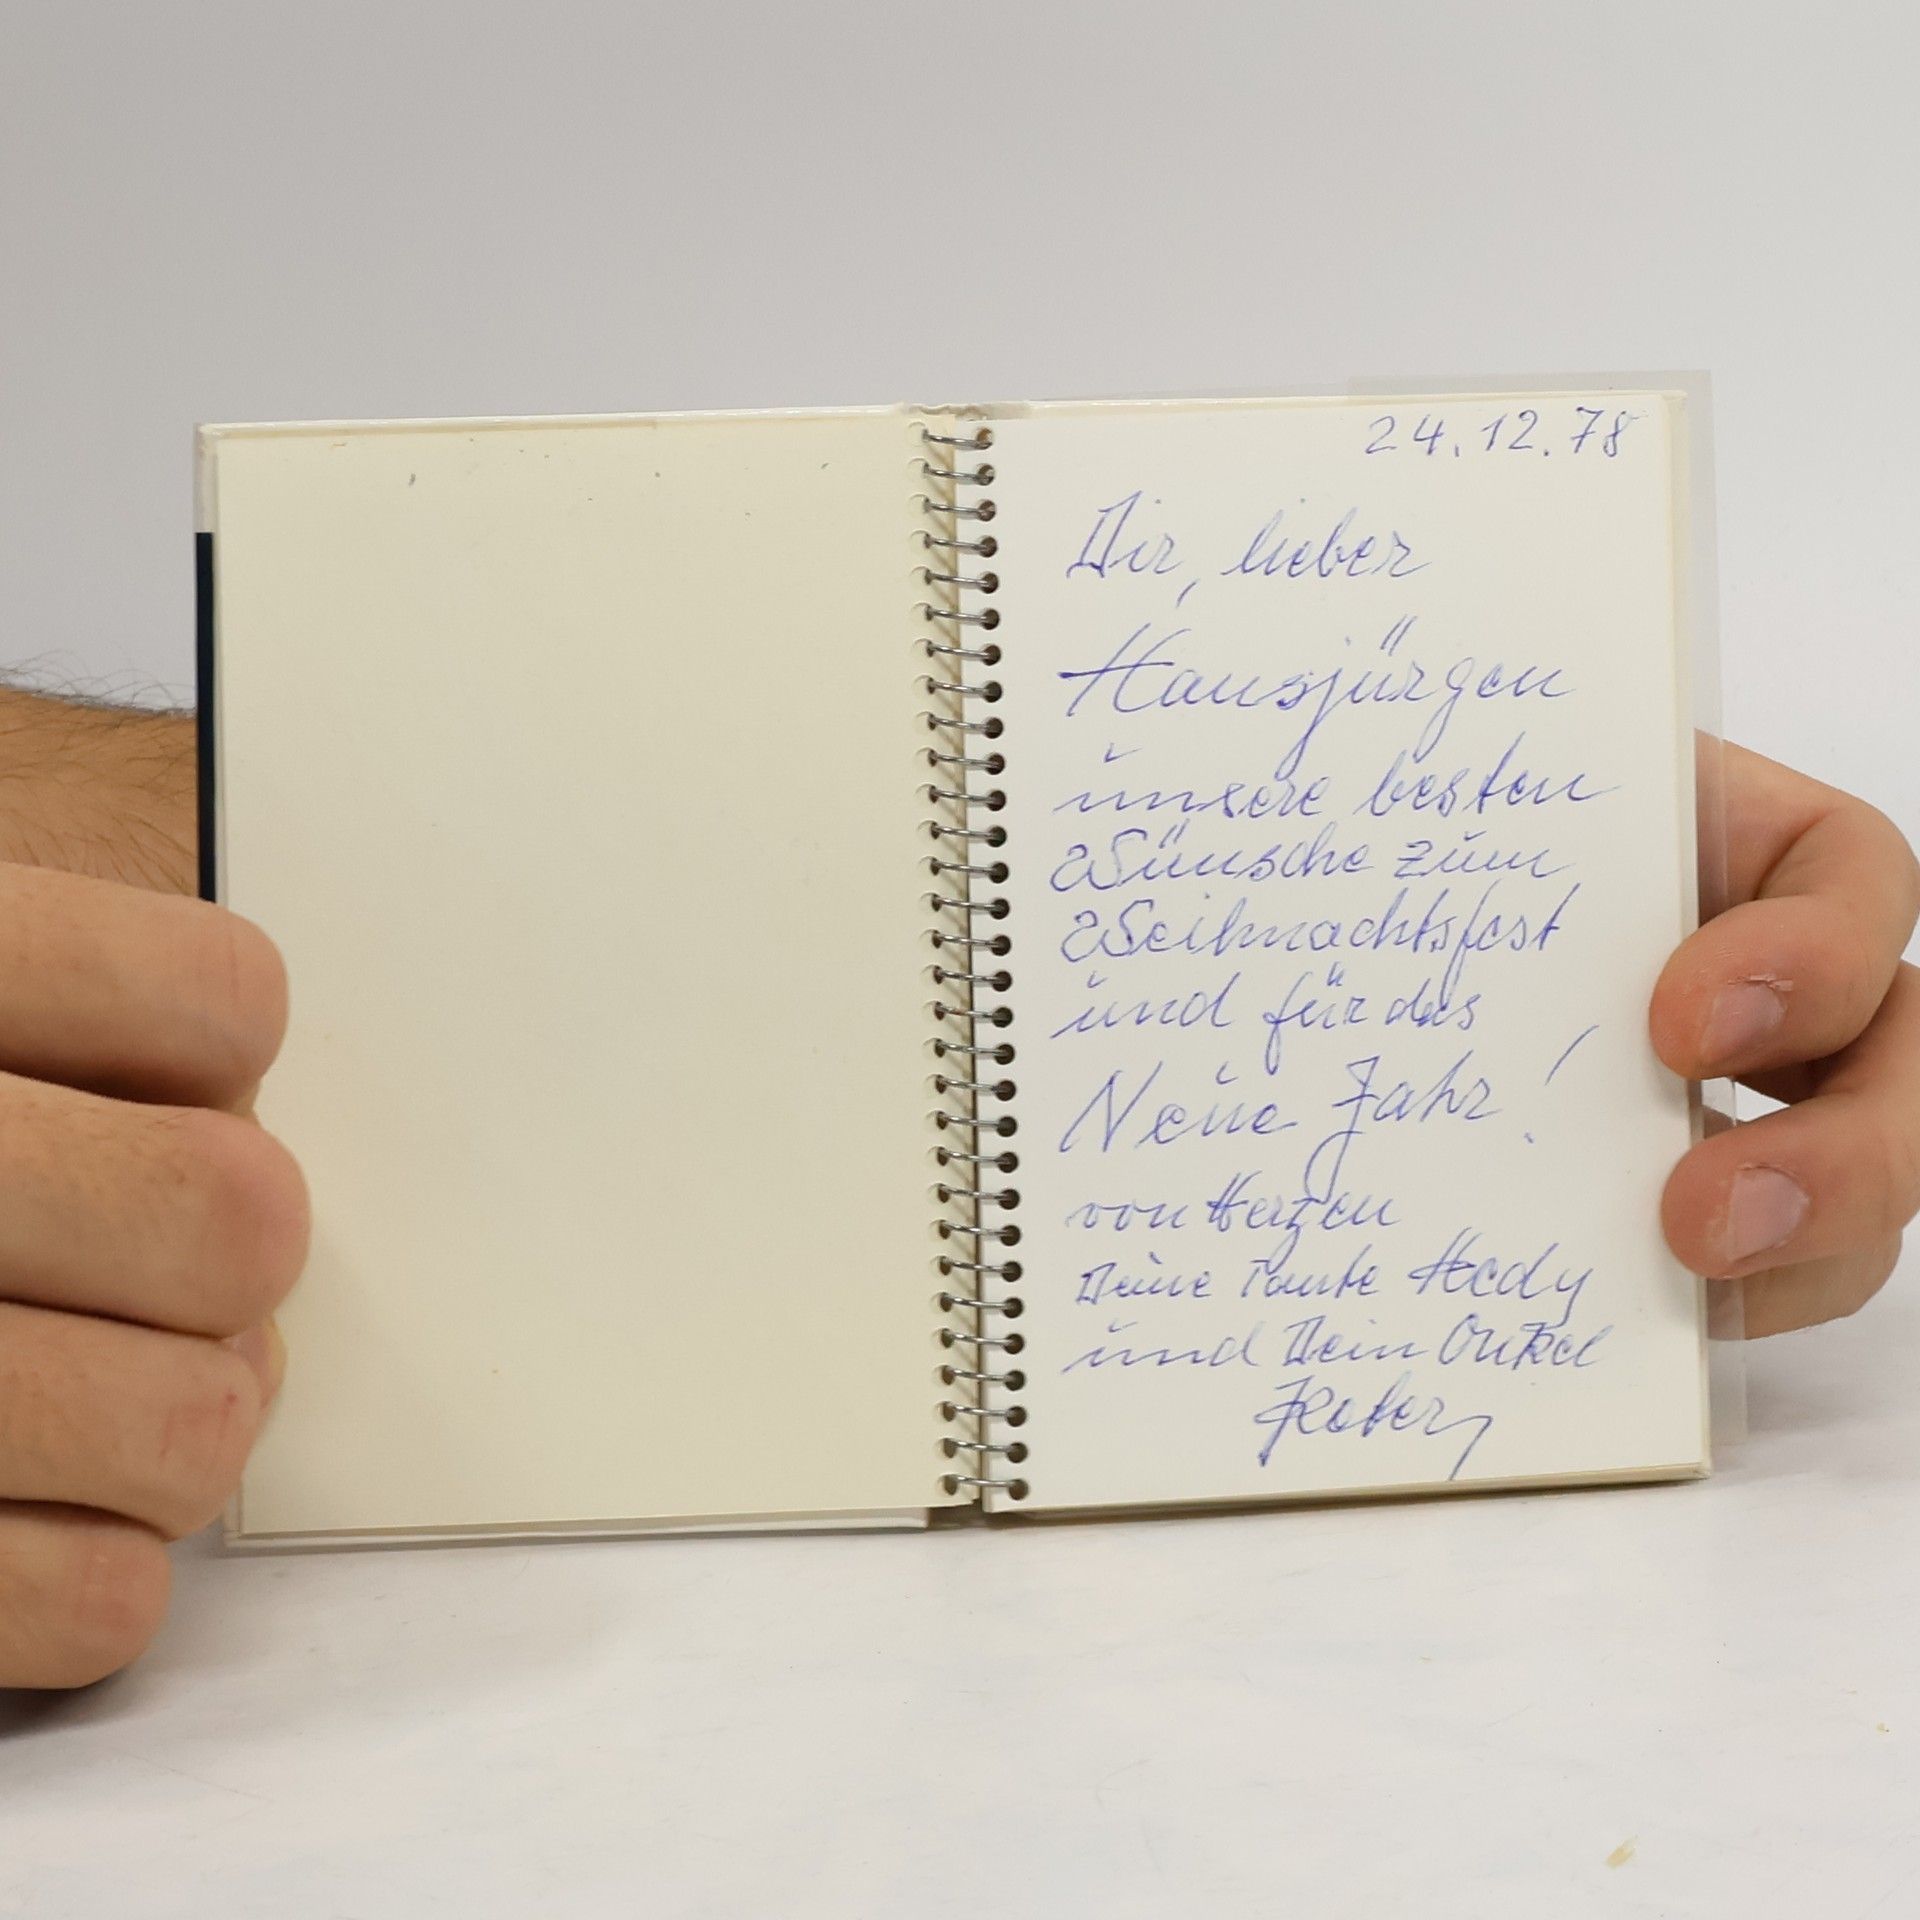 24.12.78
Dir, lieber
Hansjürgen
unsere besten
Wünsche zum
Weihnachtsfest
und für das
Neue Jahr!
von Herzen
Deine Tante Hedy
und Dein Onkel